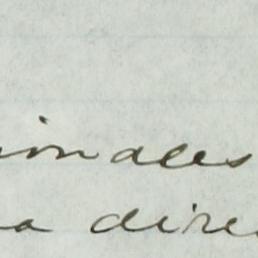 ionales
a dire